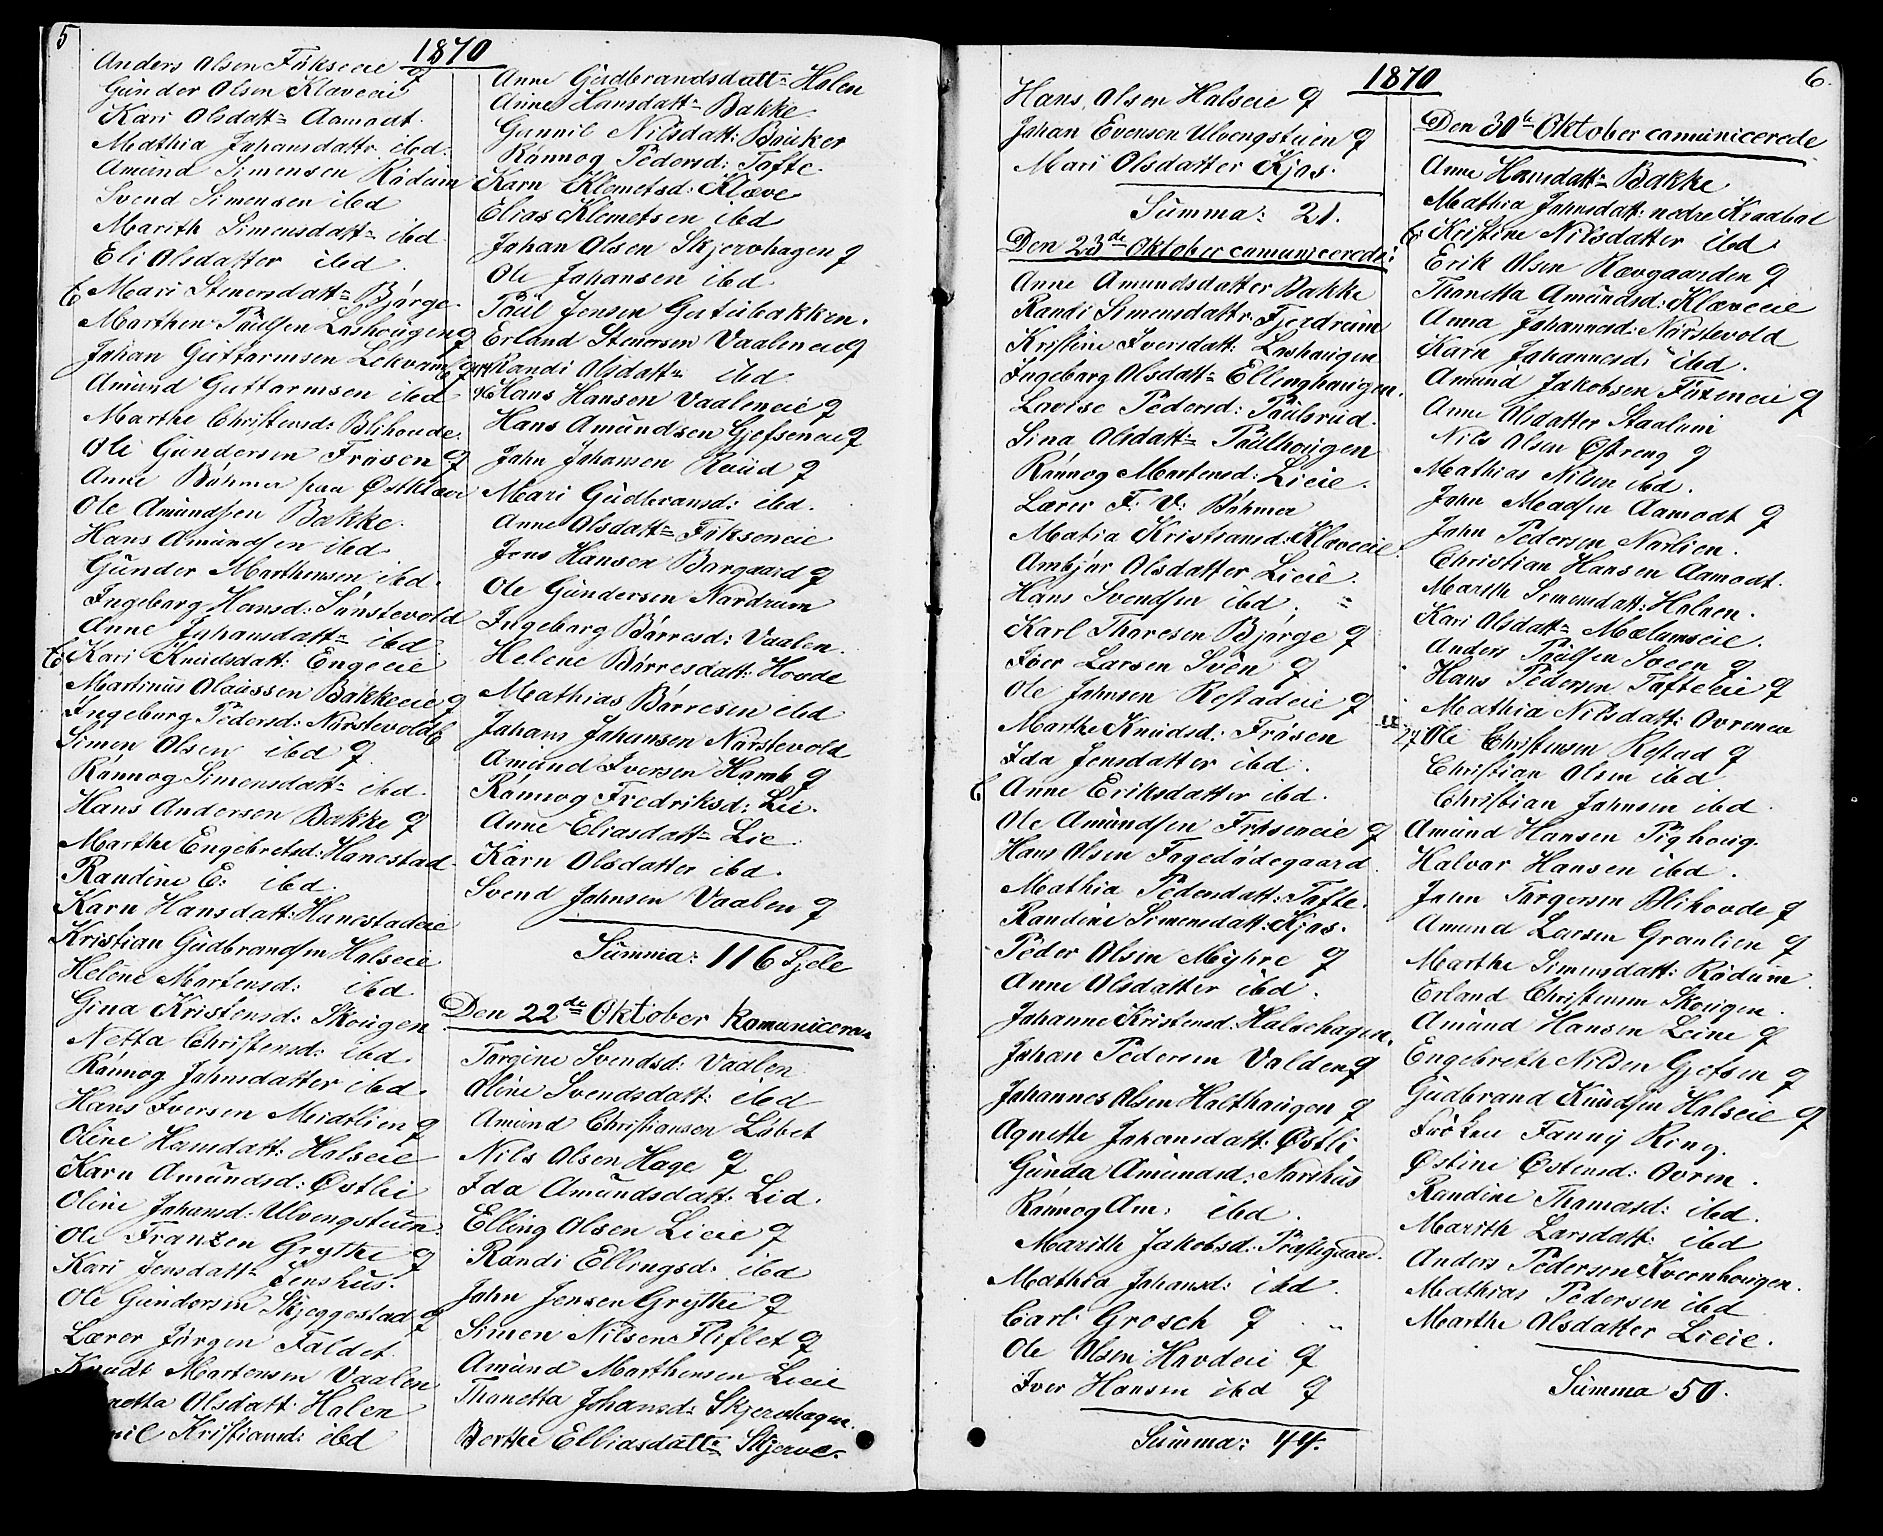 5
1870
Anders Olsen Fåkseie q
Gunder Olsen Klæveeie
Kari Olsdatt= Aamodt.
Mathia Johansdattr. ibd.
Amund Simensen Rådum
Svend Simensen ibd
Marith Simensdatt= ibd
Eli Olsdatter ibd.
Mari Stenersdatt= Bjørge.
Marthen Paulsen Løshougen q
Johan Guttormsen Lekvam q
Amund Guttormsen ibd
Marthe Christensd: Blihovde.
Ole Gundersen Frøsen q
Anne Bøhmer paa Østkleve
Ole Amundsen Bakke.
Hans Amundsen ibd.
Gunder Marthensen ibd.
Ingeborg Hansd: Sønstevold
Anne Johansdatt= ibd
Kari Knudsdatt: Engeeie
Martinus Olaussen Bakkeeie q
Ingeborg Pedersd: Nørstevold
Simen Olsen ibd q
Rønnog Simensdatt= ibd.
Hans Andersen Bakke q
Marthe Engebretsd: Hanestad
Randine E: ibd.
Karn Hansdatt: Hanestadeie
Kristian Gudbrandsen Halseie
Helene Martensd: ibd
Gina Kristensd: Skougen
Netta Christensd: ibd.
Rønnog Johnsdatter ibd.
Hans Iversen Midtlien q
Oline Hansdatt: Halseie
Karn Amundsd: Østlie
Oline Johansd: Ulvengstuen
Ole Franzen Grythe q
Kari Jensdatt= Jenshus.
Ole Gundersen Skjeggestad q
Lærer Jørgen Faldet
Knudt Martensen Vaalen
netta Olsdatt: Holen
Kristiansd: ibd
Anne Gudbrandsdatt= Holen
Anne Hansdatt= Bakke
Gunnil Nilsdatt: Bruker
Rønnog Pedersd: Tofte
Karn Klemetsd: Kleve
Elias Klemetsen ibd
Johan Olsen Skjervhagen q
Ole Johansen ibd
Paul Jensen Gutubakken.
Erland Stenersen Vaaleneie q
Randi Olsdatt= ibd
Hans Hansen Vaaleneie q
Hans Amundsen Gjefseneie q
John Johansen Ruud q
Mari Gudbransd: ibd.
Anne Olsdatt= Fåkseneie
Jens Hansen Borgaard q
Ole Gundersen Nordrum
Ingeborg Børresd: Vaalen.
Helene Børresdatt: Hovde
Mathias Børresen ibd
Johans Johansen Nørstevold
Amund Iversen Hamb q
Rønnog Fredriksd: Lie.
Anne Eliasdatt= Lie.
Karn Olsdatter ibd.
Svend Johnsen Vaalen q
Summa: 116 Sjele
Den 22de Oktober Komunicera=
Torgine Svendsd: Vaalen
Oline Svendsdatt: ibd
Amund Christiansen Løbet
Nils Olsen Hage q
Ida Amundsdatt: Lid.
Elling Olsen Lieie q
Randi Ellingsd: ibd
John Jensen Grythe q
Simen Nilsen Fliflet q
Amund Marthensen Lieie
Thonetta Johansd: Skjervhagen.
Berthe Elliasdatt= Skjerve.
1870
6.
Hans Olsen Halseie q
Johan Evensen Ulvengstuen q
Mari Olsdatter Kjos.
Summa: 21.
Den 23de Oktober comunicerede:
Anne Amundsdatter Bakke
Randi Simensdattr. Fjerdrum
Kristine Iversdatt: Løshaugen
Ingeborg Olsdatt= Ellinghaugen.
Lovise Pedersd: Paulsrud.
Sina Olsdatt= Paulhougen
Rønnog Martensd: Lieie.
Lærer F. V: Bøhmer
Matia Kristiansd: Klæveeie
Ambjør Olsdatter Lieie.
Hans Svendsen ibd. =
Karl Thoresen Bjørge q
Iver Larsen Sven q
Ole Johnsen Røstadeie q
Marthe Knudsd: Frøsen
Ida Jensdatter ibd.
Anne Eriksdatter ibd.
Ole Amundsen Frøseneie q
Hans Olsen Fogedødegaard
Mathia Pedersdatt: Tofte.
Randine Simensdatt: Kjos.
Peder Olsen Myhre q
Anne Olsdatter ibd.
Johanne Kristensd: Halsehagen.
Johan Pedersen Volden q
Johannes Olsen Halthaugen q
Agnette Johansdatt: Østli
Gunda Amundsd: Nordhus
Rønnog Am: ibd.
Marith Jakobsd: Præstegaard.
Mathia Johansd: ibd.
Carl Grosch q
Ole Olsen Hovdeie q
Iver Hansen ibd q
Summa: 44.
Den 30te Oktober comunicerede
Anne Hansdatt= Bakke
Mathia Johnsdatt: nedre Kraabøl
Kristine Nilsdatter ibd.
Erik Olsen Rævgaarden q
Thonetta Amundsd: Klæveeie
Anna Johannesd: Nørstevold
Karn Johannesd: ibd.
Amund Jakobsen Foxeneie q
Anne Olsdatter Staalen
Nils Olsen Østreng q
Mathias Nilsen ibd.
John Meadsen Aamodt q
John Pedersen Nørlien.
Christian Hansen Aamodt.
Marith Simensdatt: Holaen.
Kari Olsdatt= Mælumseie.
Anders Paulsen Sveen q
Hans Pedersen Tofteieie q
Mathia Nilsdatt: Ovreneie
Ole Christensen Røstad q
Christian Olsen ibd
Christian Johnsen ibd
Amund Hansen Pighoug.
Halvor Hansen ibd.
John Torgersen Blihovde q
Amund Larsen Granlien q
Marthe Simensdatt: Rådum.
Erland Christensen Skougen.
Amund Hansen Leine q
Engebreth Nilsen Gjefsen q
Gudbrand Knudsen Halseie q
Frøken Fanny Ring.
Østine Østensd: Ovren.
Randine Thomasd: ibd.
Marith Larsdatt: ibd
Anders Pedersen Kvernhougen.
Mathias Pedersen ibd
Marthe Olsdatter Lieie.
Summa 50.